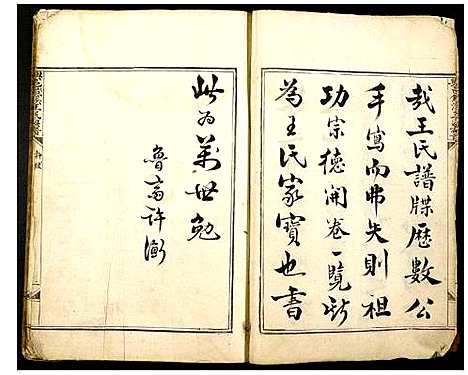 哉王氏譜牒歷數公
手寫而弗失則祖
功宗德開卷一覽所
為王氏家寶也書
此為萬世勉
魯齋許衡